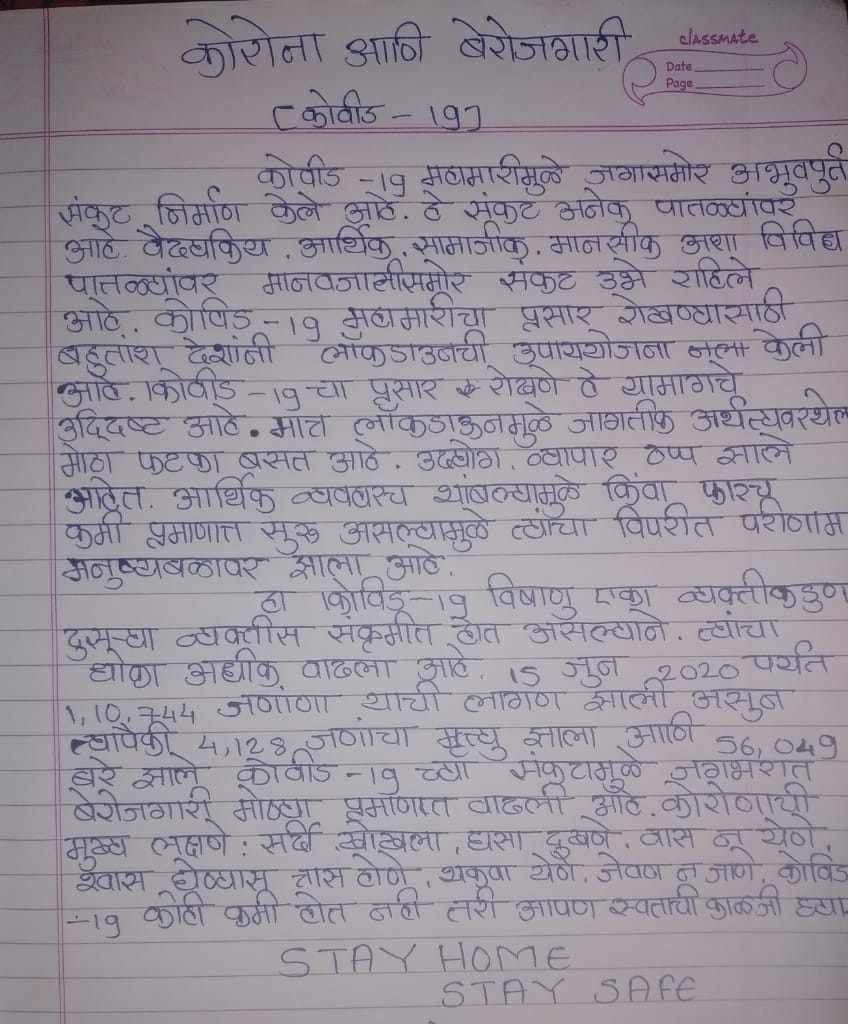 कोरोना आणि बेरोजगारी
classmate
Date
Page
[कोवीड - 19]
कोवीड -19 महामारीमुळे जगासमोर अभुवपुर्त
संकट निर्माण केले आहे. हे संकट अनेक पातळ्यांवर
आहे. वैदयकिय, आर्थिक, सामाजीक, मानसीक अशा विविध
पातळ्यांवर मानवजातीसमोर संकट उभे राहिले
आहे. कोविड -19 महामारीचा प्रसार रोखण्यासाठी
बहुतांश देशांनी लॉकडाउनची उपाययोजना केली
आहे. कोवीड -19 चा प्रसार रोखणे हे यामागचे
उद्दिदष्ट आहे. मात्र लॉकडाऊनमुळे जागतीक अर्थव्यवस्थेला
मोठा फटका बसत आहे. उदयोग, व्यापार ठप्प झाले
आहेत. आर्थिक व्यवहारच थांबल्यामुळे किंवा फारच
कमी प्रमाणात सुरू असल्यामुळे त्यांचा विपरीत परीणाम
मनुष्यबळावर झाला आहे.
हा कोविड -19 विषाणु एका व्यक्तीकडुण
दुसऱ्या व्यक्तीस संक्रमीत होत असल्याने. त्यांचा
धोका अधीक वाढला आहे. 15 जुन 2020 पर्यंत
1,10,744 जणांणा याची लागण झाली असुन
त्यापैकी 4,128 जणांचा मृत्यु झाला आणि 56,049
बरे झाले कोवीड -19 च्या संकटामुळे जगभरात
बेरोजगारी मोठ्या प्रमाणात वाढली आहे. कोरोणाची
मुख्य लक्षणे : सर्दि खोखला, घसा दुखणे, वास न येणे,
श्वास घेण्यास त्रास होणे, थकवा येणे, जेवण न जाणे, कोविड
-19 कोही कमी होत नही तरी आपण स्वताची काळजी घ्या.
STAY HOME
STAY SAFE